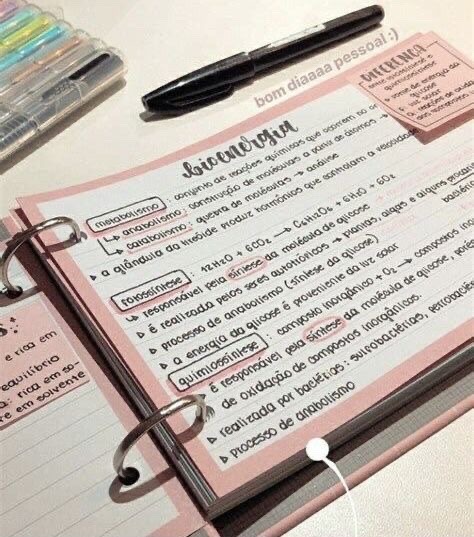 bom diaaaa pessoal :)
DIFERENÇA
entre quimiossíntese e
fonte de energia da
glicose
luz solar
bioenergia
metabolismo : conjunto de reações químicas que ocorrem no
anabolismo : construção de moléculas a partir de átomos →
catabolismo : quebra de moléculas → análise
a glândula da tireóide produz hormônios que controlam a velocidade
fotossíntese : 12H2O + 6CO2 → C6H12O6 + 6H2O + 6O2
responsável pela síntese da molécula de glicose
é realizada pelos seres autotróficos → plantas, algas e algumas
processo de anabolismo (síntese da glicose)
a energia da glicose é proveniente da luz solar
quimiossíntese : composto inorgânico + O2 → compostos
é responsável pela síntese da molécula de glicose,
de oxidação de compostos inorgânicos
realizada por bactérias : sulfobactérias, ferrobactérias
processo de anabolismo
e rica em
equilíbrio
rica em
em solvente